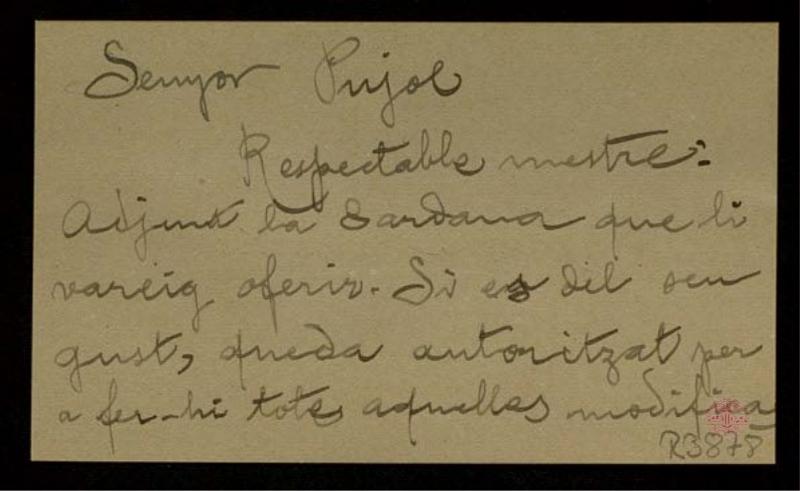 Senyor Pujol
Respectable mestre:
Adjunt la Sardana que li
vareig oferir. Si es del seu
gust, queda autoritzat per
a fer-hi totes aquelles modifica
R3878